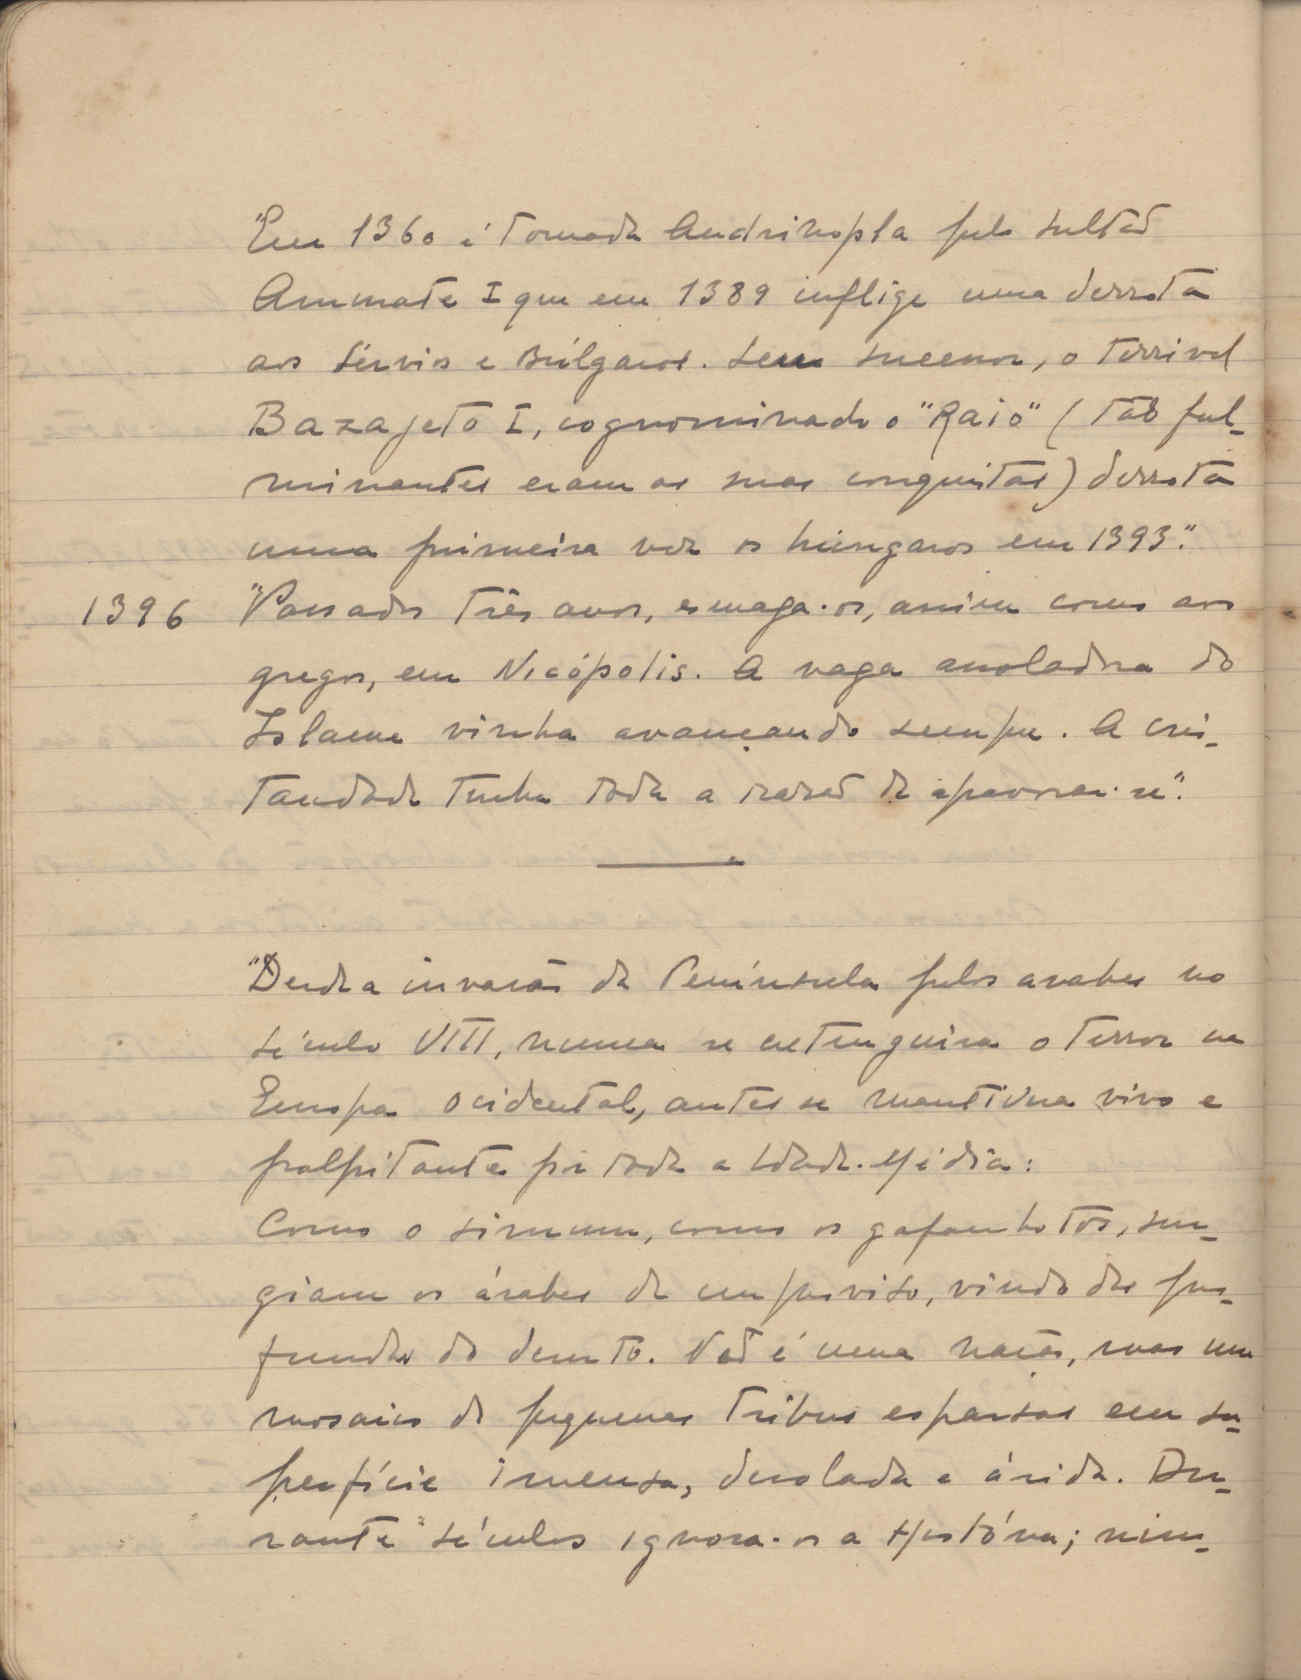 "Em 1360 é tomada Andrinopla pelo sultão
Amurate I que em 1389 inflige uma derrota
aos Sérvios e Búlgaros. Seu sucessor, o terrivel
Bazajeto I, cognominado o "Raio" (tão ful-
minantes eram as suas conquistas) derrota
uma primeira vez os húngaros em 1393".
1396 "Passados três anos, esmaga-os, assim como aos
gregos, em Nicópolis. A vaga assoladora do
Islame vinha avançando sempre. A cris-
tandade tinha toda a razão de apavorar-se".
"Desde a invasão da Península pelos arabes no
século VIII, nunca se extinguira o terror na
Europa ocidental, antes se mantivera vivo e
palpitante por toda a Idade-Média:
Como o simum, como os gafanhotos, sur-
giam os árabes de improviso, vindo das pro-
fundas do deserto. Não é uma nação, mas um
mosaico de pequenas tribus esparsas em su-
perfície imensa, desolada e árida. Du-
rante séculos ignora-os a História; nin-